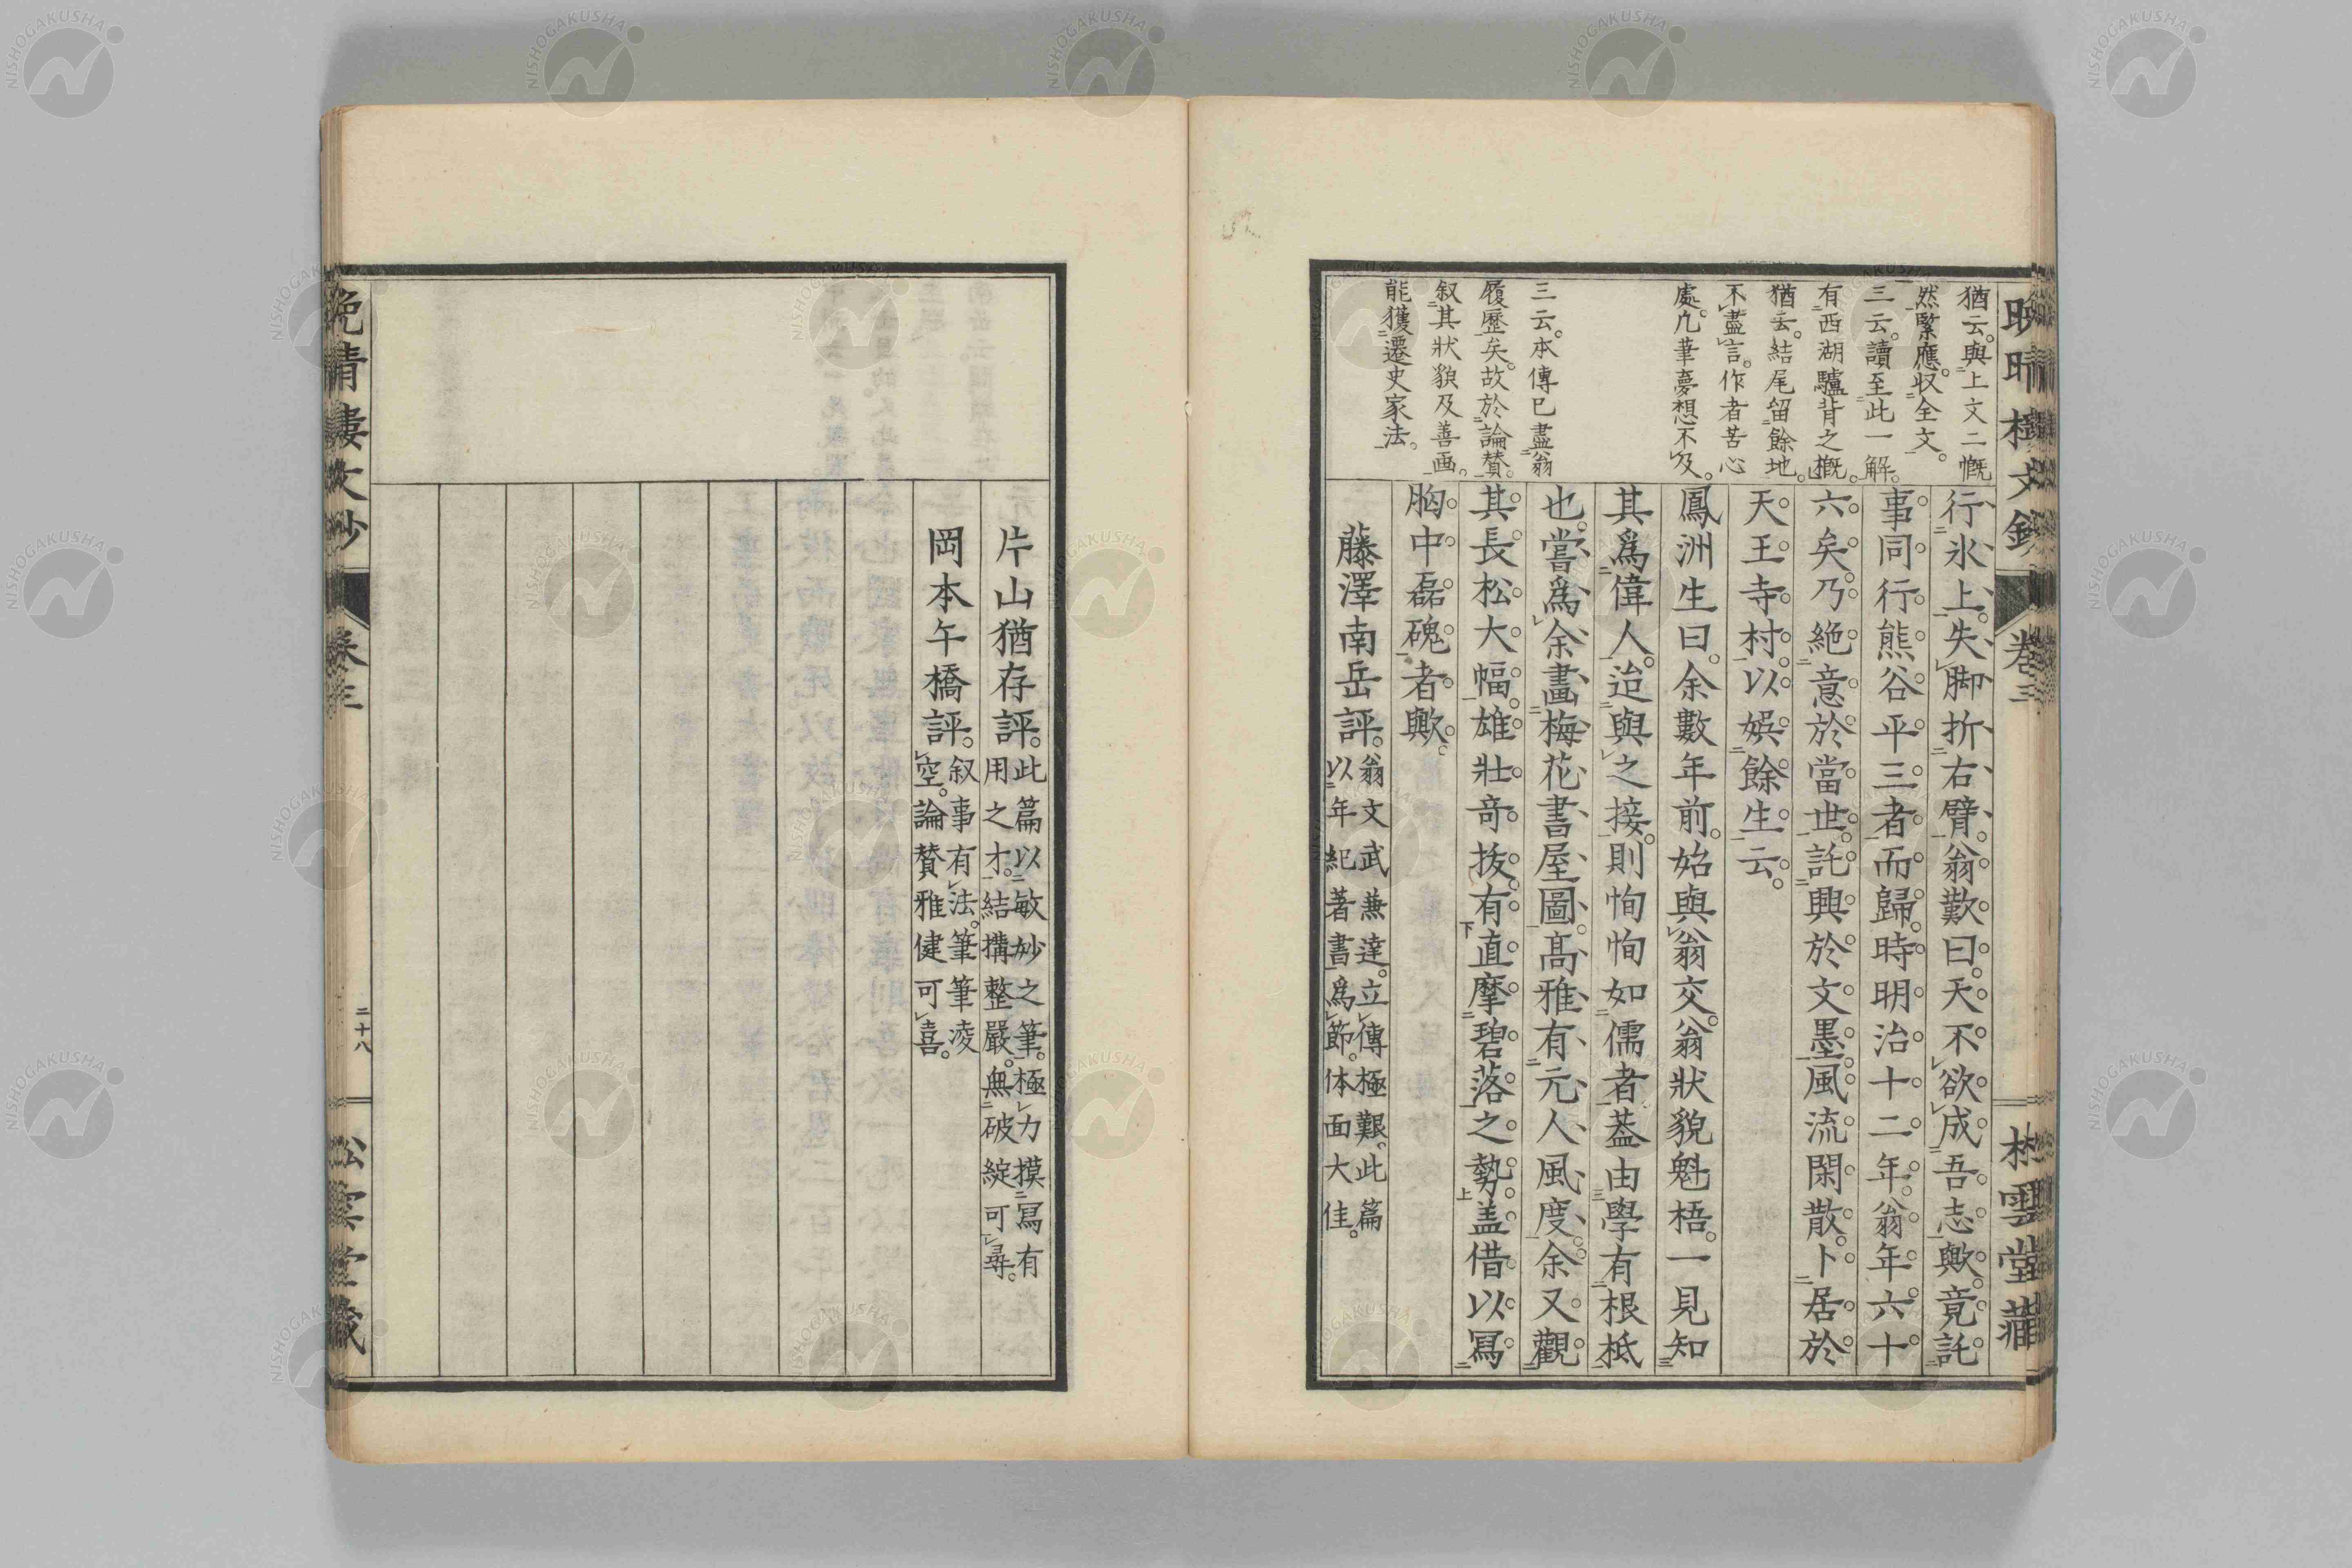 猶云。與上文二慨
然緊應。収全文。
三云。讀至此一解。
有西湖驢背之概。
猶云。結尾留餘地。
不盡言。作者苦心
處。凢筆夢想不及。
三云。本傳已盡翁
履歷矣。故於論賛。
叙其狀貌及善画。
能獲遷史家法。
行氷上。失脚折右臂。翁歎曰。天不欲成吾志歟。竟託
事同行熊谷平三者而歸。時明治十二年。翁年六十
六矣。乃絶意於當世。託興於文墨。風流閑散。卜居於
天王寺村。以娯餘生云。
鳳洲生曰。余數年前。始與翁交。翁狀貌魁梧。一見知
其爲偉人。迨與之接。則恂恂如儒者。葢由學有根柢
也。嘗爲余畫梅花書屋圖。高雅有元人風度。余又觀
其長松大幅。雄壯竒拔。有直摩碧落之勢。盖借以冩
胸中磊磈者歟。
藤澤南岳評。翁文武兼達。立傳極艱。此篇
以年紀著書爲節。体面大佳。
片山猶存評。此篇以敏妙之筆。極力摸冩有
用之才。結搆整嚴。無破綻可尋。
岡本午橋評。叙事有法。筆筆凌
空。論賛雅健可喜。
卷三
二十八